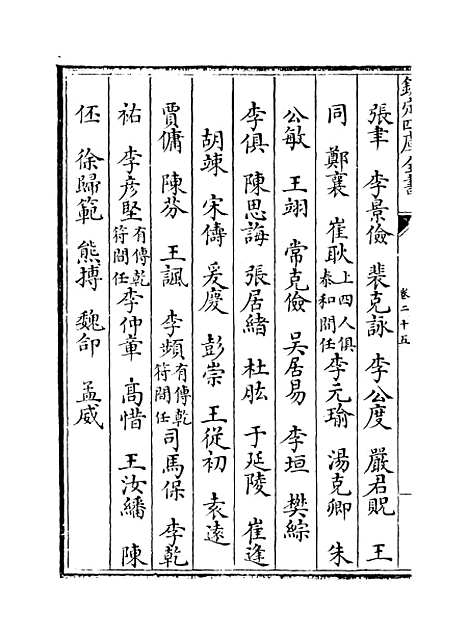 欽定四庫全書
卷二十五
張聿 李景儉 裴克詠 李公度 嚴君貺 王
同 鄭襄 崔耿上四人俱泰和間任李元瑜 湯克卿 朱
公敏 王翊 常克儉 吳居易 李垣 樊綜
李俱 陳思誨 張居緒 杜肱 于延陵 崔逢
胡竦 宋儔 爰慶 彭崇 王從初 袁遠
賈傭 陳芬 王諷 李頻有傳乾符間任司馬保 李乾
祐 李彥堅有傳乾符間任李仲章 高惜 王汝繙 陳
伾 徐歸範 熊摶 魏郃 孟威